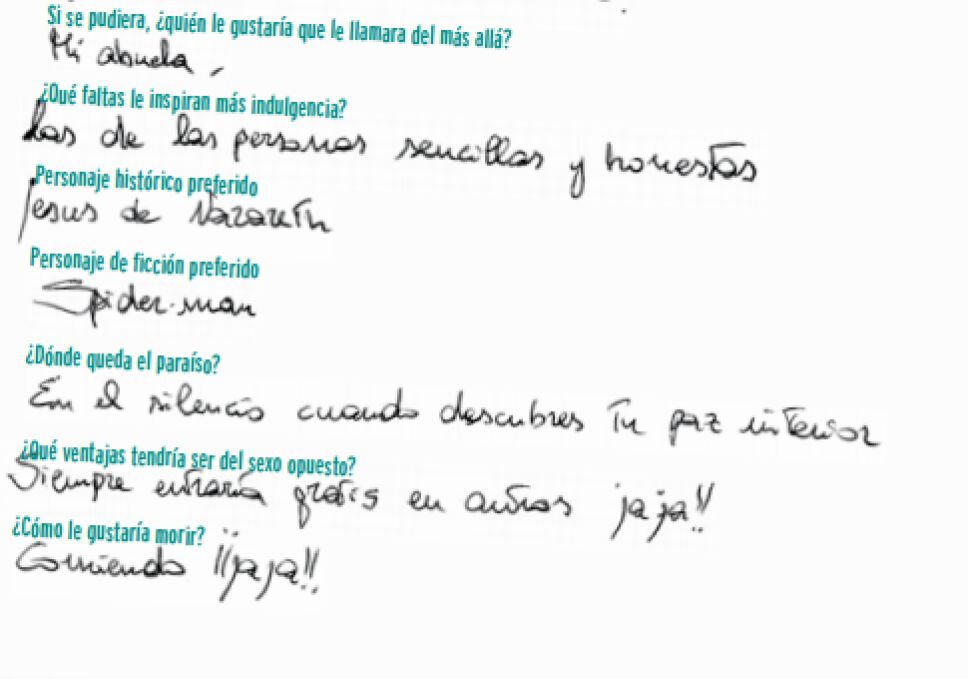 Si se pudiera, ¿quién le gustaría que le llamara del más allá?
Mi abuela,
¿Qué faltas le inspiran más indulgencia?
Las de las personas sencillas y honestas
Personaje histórico preferido
Jesus de Nazareth
Personaje de ficción preferido
Spider-man
¿Dónde queda el paraíso?
En el silencio cuando descubres tu paz interior
¿Qué ventajas tendría ser del sexo opuesto?
Siempre entraría gratis en antros jaja!!
¿Cómo le gustaría morir?
Comiendo ¡¡jaja!!